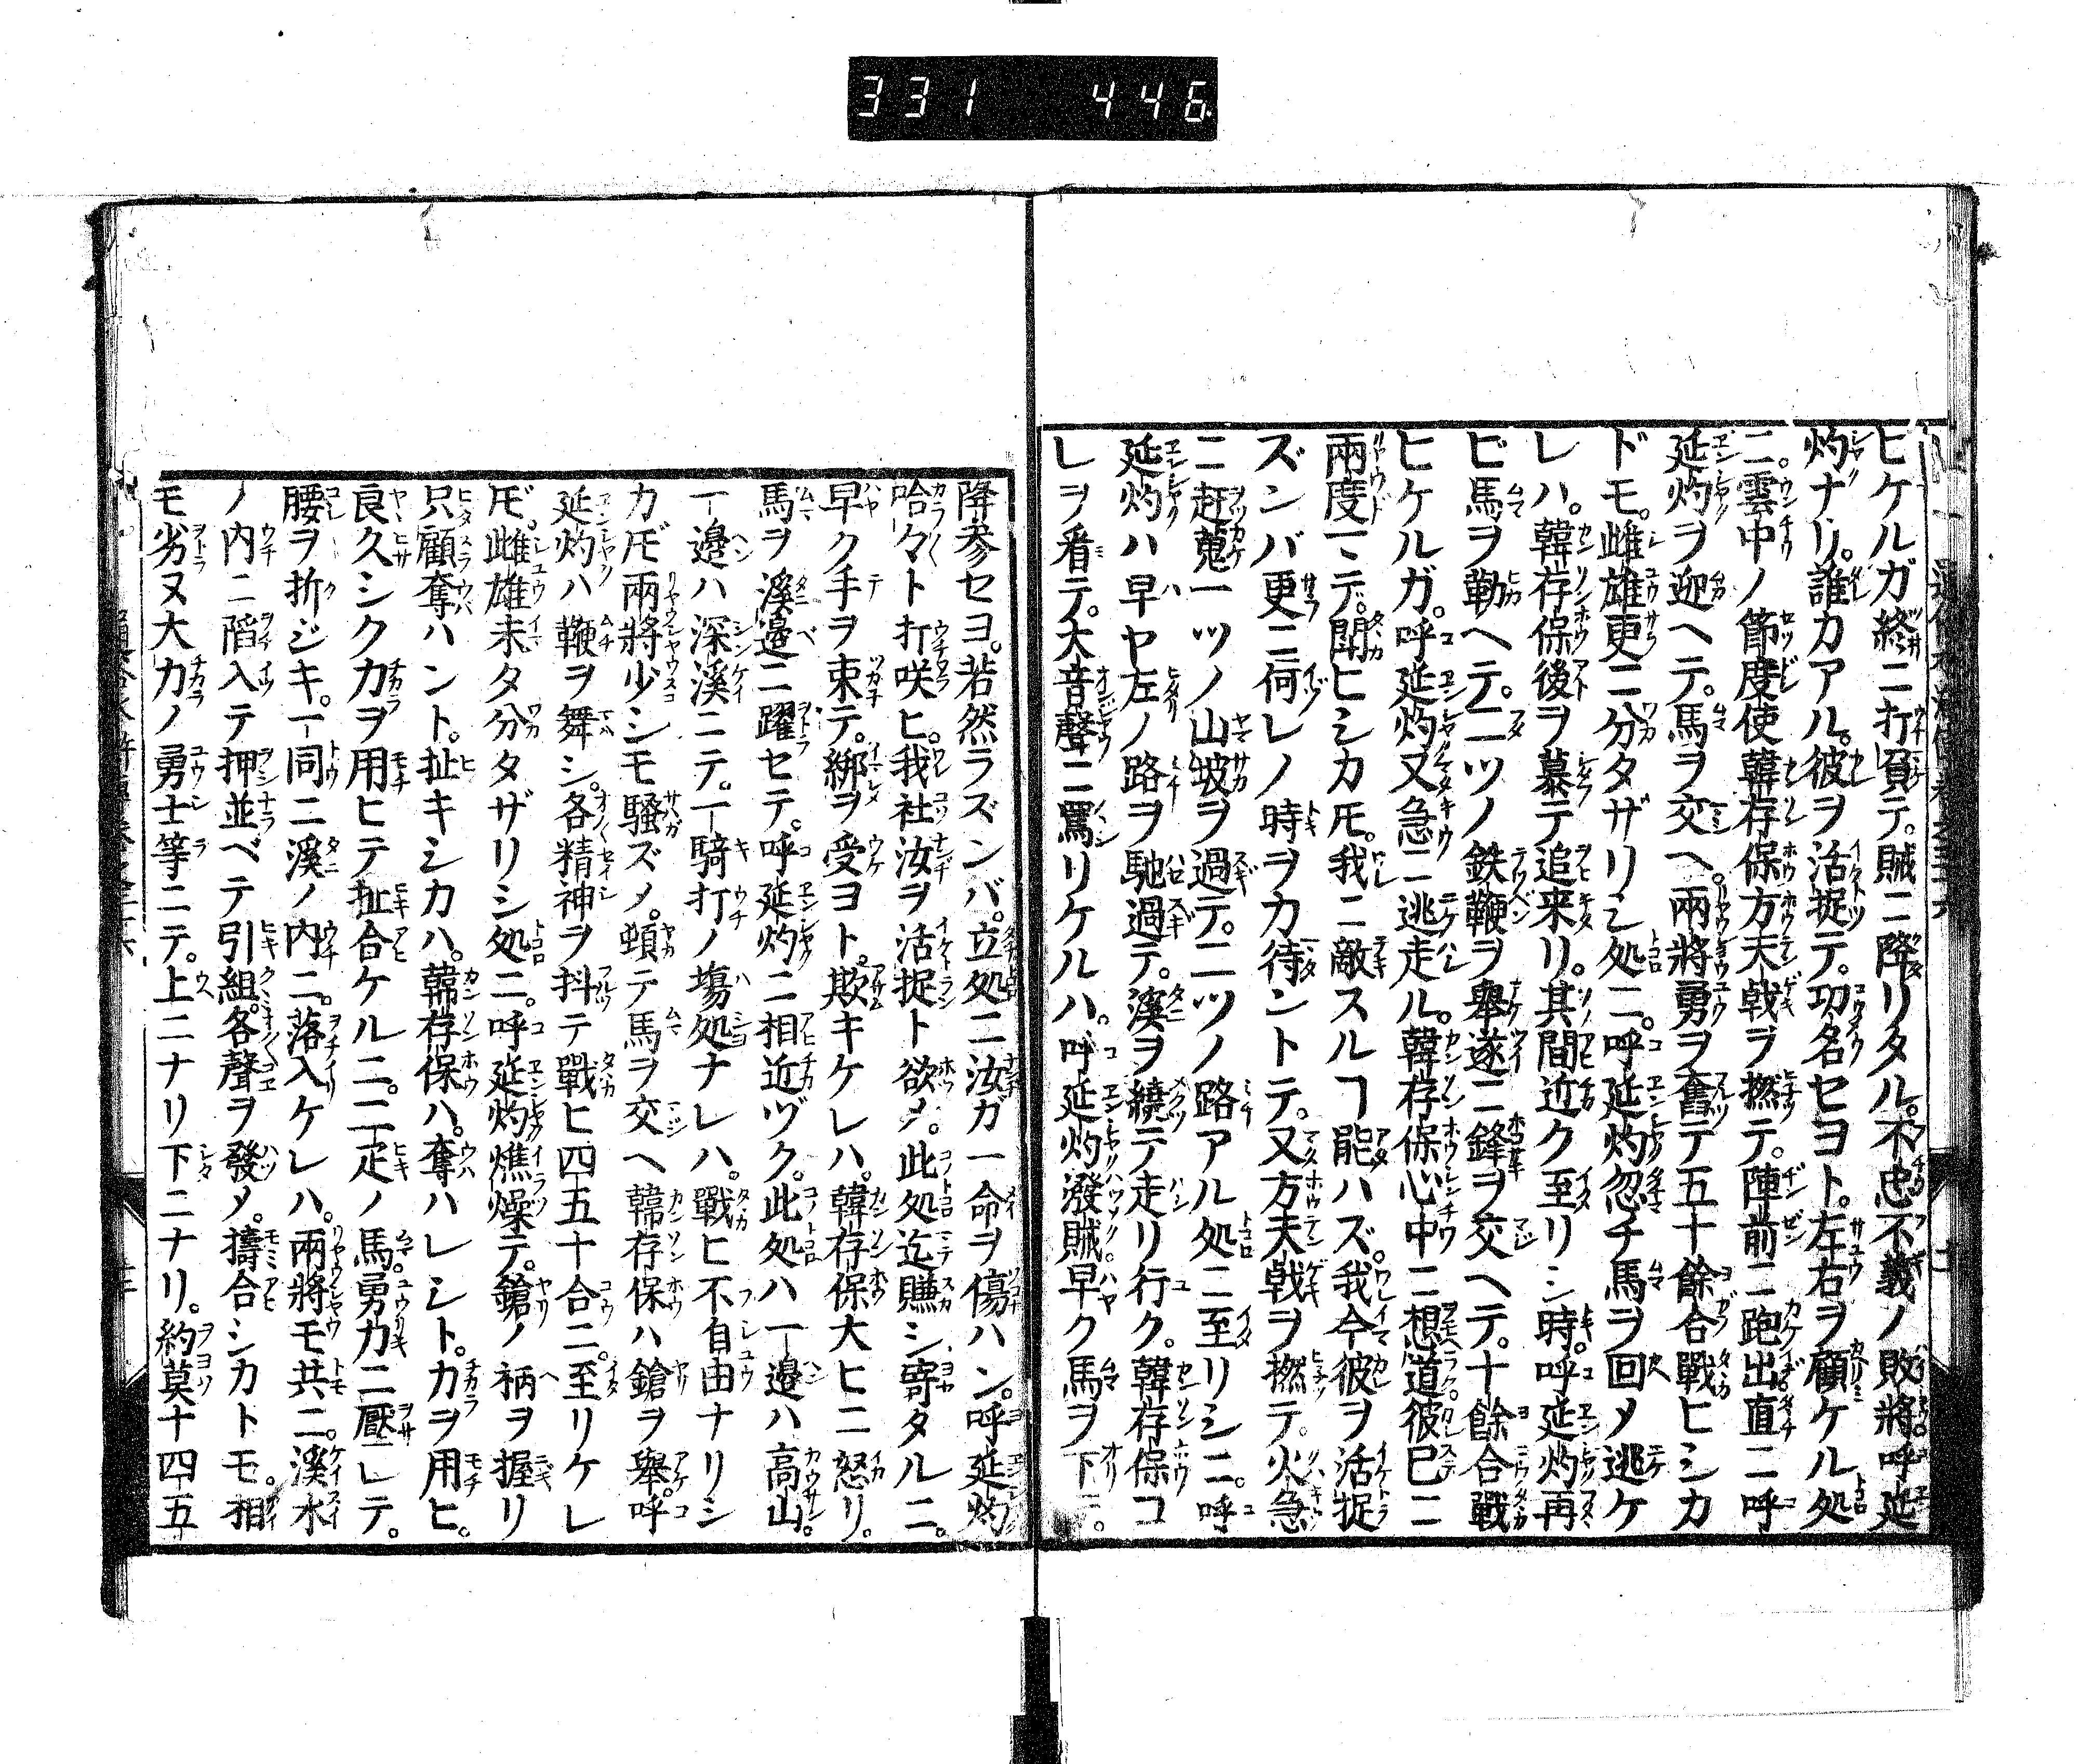 331 446
ヒケルガ終ニ打負テ。賊ニ降リタル。不忠不義ノ敗將呼延
灼ナリ。誰カアル。彼ヲ活捉テ。功名セヨト。左右ヲ顧ケル処
ニ。雲中ノ節度使韓存保方天戟ヲ撚テ。陣前ニ跑出直ニ呼
延灼ヲ迎ヘテ。馬ヲ交ヘ。兩將勇ヲ奮テ五十餘合戰ヒシカ
ドモ。雌雄更ニ分タザリシ処ニ。呼延灼忽チ馬ヲ回メ逃ケ
レハ。韓存保後ヲ慕テ追来リ。其間近ク至リシ時。呼延灼再
ビ馬ヲ勒ヘテ。二ツノ鉄鞭ヲ舉遂ニ鋒ヲ交ヘテ。十餘合戰
ヒケルガ。呼延灼又急ニ逃走ル。韓存保心中ニ想道彼已ニ
兩度マテ。鬪ヒシカ𪜈。我ニ敵スルヿ能ハズ。我今彼ヲ活捉
ズンバ更ニ何レノ時ヲカ待ントテ。又方天戟ヲ撚テ。火急
ニ赶蒐一ツノ山坡ヲ過テ。二ツノ路アル処ニ至リシニ。呼
延灼ハ早ヤ左ノ路ヲ馳過テ。溪ヲ繞テ走リ行ク。韓存保コ
レヲ看テ。大音聲ニ罵リケルハ。呼延灼潑賊。早ク馬ヲ下ニ。
降参セヨ。若然ラズンバ。立処ニ汝ガ一命ヲ傷ハン。呼延灼
哈々ト打咲ヒ。我社汝ヲ活捉ト欲メ。此処迄賺シ寄タルニ。
早ク手ヲ束テ。綁ヲ受ヨト。欺キケレハ。韓存保大ヒニ怒リ。
馬ヲ溪邉ニ躍セテ。呼延灼ニ相近ヅク。此処ハ一邉ハ高山。
一邉ハ深溪ニテ。一騎打ノ塲処ナレハ。戰ヒ不自由ナリシ
カ𪜈兩將少シモ騷ズメ。頓テ馬ヲ交ヘ韓存保ハ鎗ヲ舉。呼
延灼ハ鞭ヲ舞シ。各精神ヲ抖テ戰ヒ四五十合ニ。至リケレ
𪜈。雌雄未タ分タザリシ処ニ。呼延灼燋燥テ。鎗ノ柄ヲ握リ
只顧奪ハント。扯キシカハ。韓存保ハ。奪ハレシト。力ヲ用ヒ。
良久シク力ヲ用ヒテ扯合ケルニ。二疋ノ馬。勇力ニ壓レテ。
腰ヲ折ジキ。一同ニ溪ノ内ニ。落入ケレハ。兩將モ共ニ。溪水
ノ内ニ陷入テ押並ベテ引組。各聲ヲ發メ。擣合シカトモ。相
モ劣ヌ大力ノ勇士等ニテ。上ニナリ下ニナリ。約莫十四五